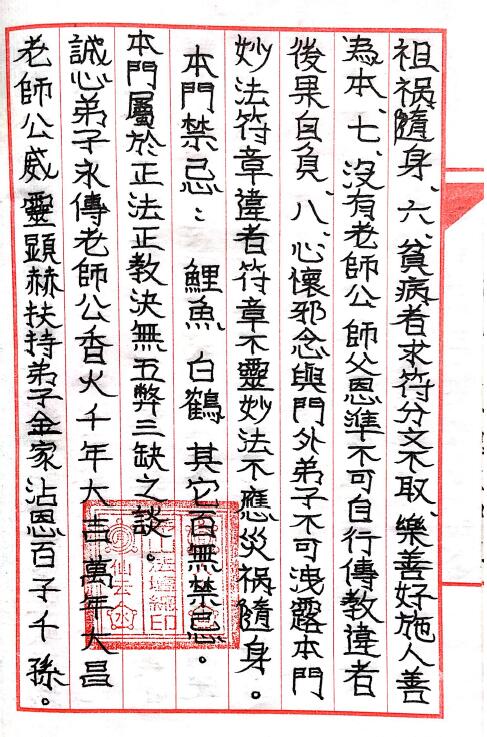 祖祸隨身、六、貧病者求符分文不取、樂善好施人善
為本、七、沒有老師公師父恩準不可自行傳教違者
後果自負、八、心懷邪念與門外弟子不可洩露本門
妙法符章違者符章不靈妙法不應災祸隨身。
本門禁忌：鯉魚 白鶴 其它百無禁忌。
本門屬於正法正教決無五弊三缺之談。
誠心弟子永傳老師公香火千年大吉萬年大昌
老師公威靈顯赫扶持弟子金家沾恩百子千孫。